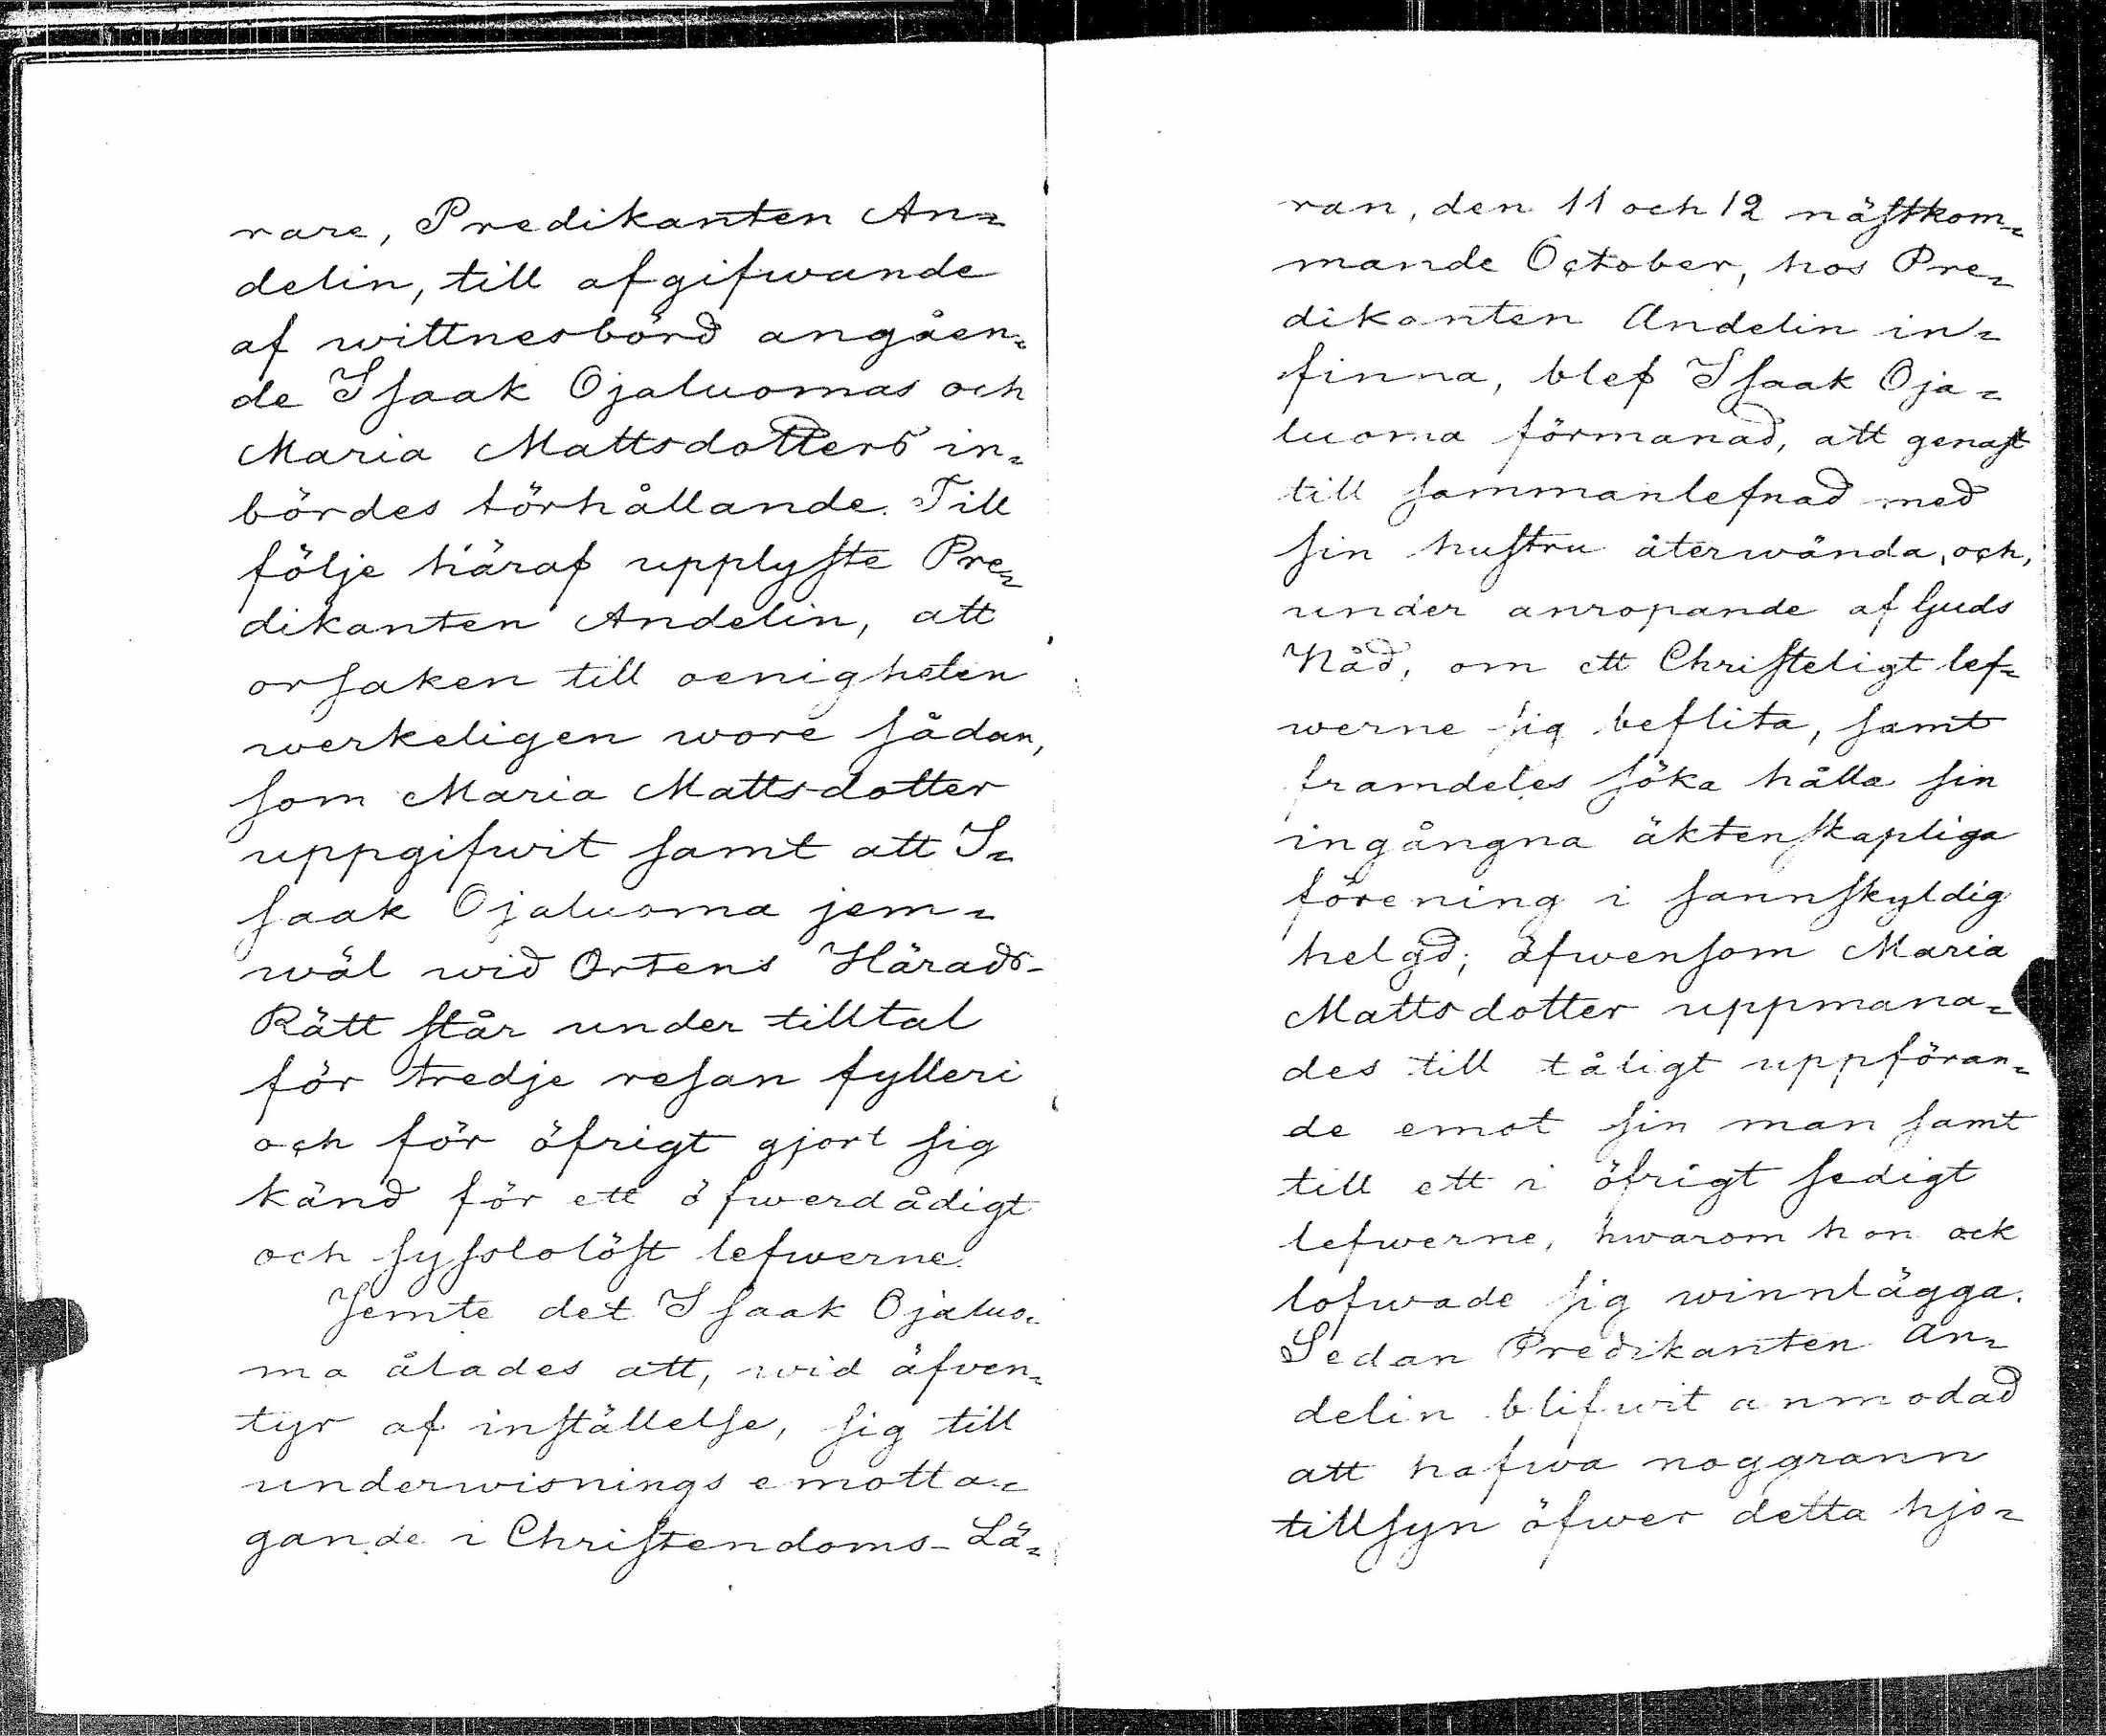 rare, Predikanten An=
delin, till afgifwande
af wittnesbörd angåen=
de Isaak Ojaluomas och
Maria Mattsdotters in=
bördes förhållande. Till
följe häraf upplyste Pre=
dikanten Andelin, att
orsaken till oenigheten
werkeligen wore sådan,
som Maria Mattsdotter
uppgifwit samt att I=
saak Ojaluoma jem=
wäl wid Ortens Härads-
Rätt står under tilltal
för tredje resan fylleri
och för öfrigt gjort sig
känd för ett öfwerdådigt
och syssolöst lefwerne.
Jemte det Isaak Ojaluo=
ma ålades att, wid äfven=
tyr af inställelse, sig till
underwisnings emotta=
gande i Christendoms-Lä=
ran, den 11 och 12 nästkom=
mande October, hos Pre=
dikanten Andelin in=
finna, blef Isaak Oja=
luoma förmanad, att genast
till sammanlefnad med
sin hustru återwända, och,
under anropande af Guds
Nåd, om ett Christeligt lef=
werne sig beflita, samt
framdeles söka hålla sin
ingångna äktenskapliga
förening i sannskyldig
helgd; äfwensom Maria
Mattsdotter uppmana=
des till tåligt uppföran=
de emot sin man samt
till ett i öfrigt sedigt
lefwerne, hwarom hon ock
lofwade sig winnlägga.
Sedan Predikanten An=
delin blifwit anmodad
att hafwa noggrann
tillsyn öfwer detta hjo=